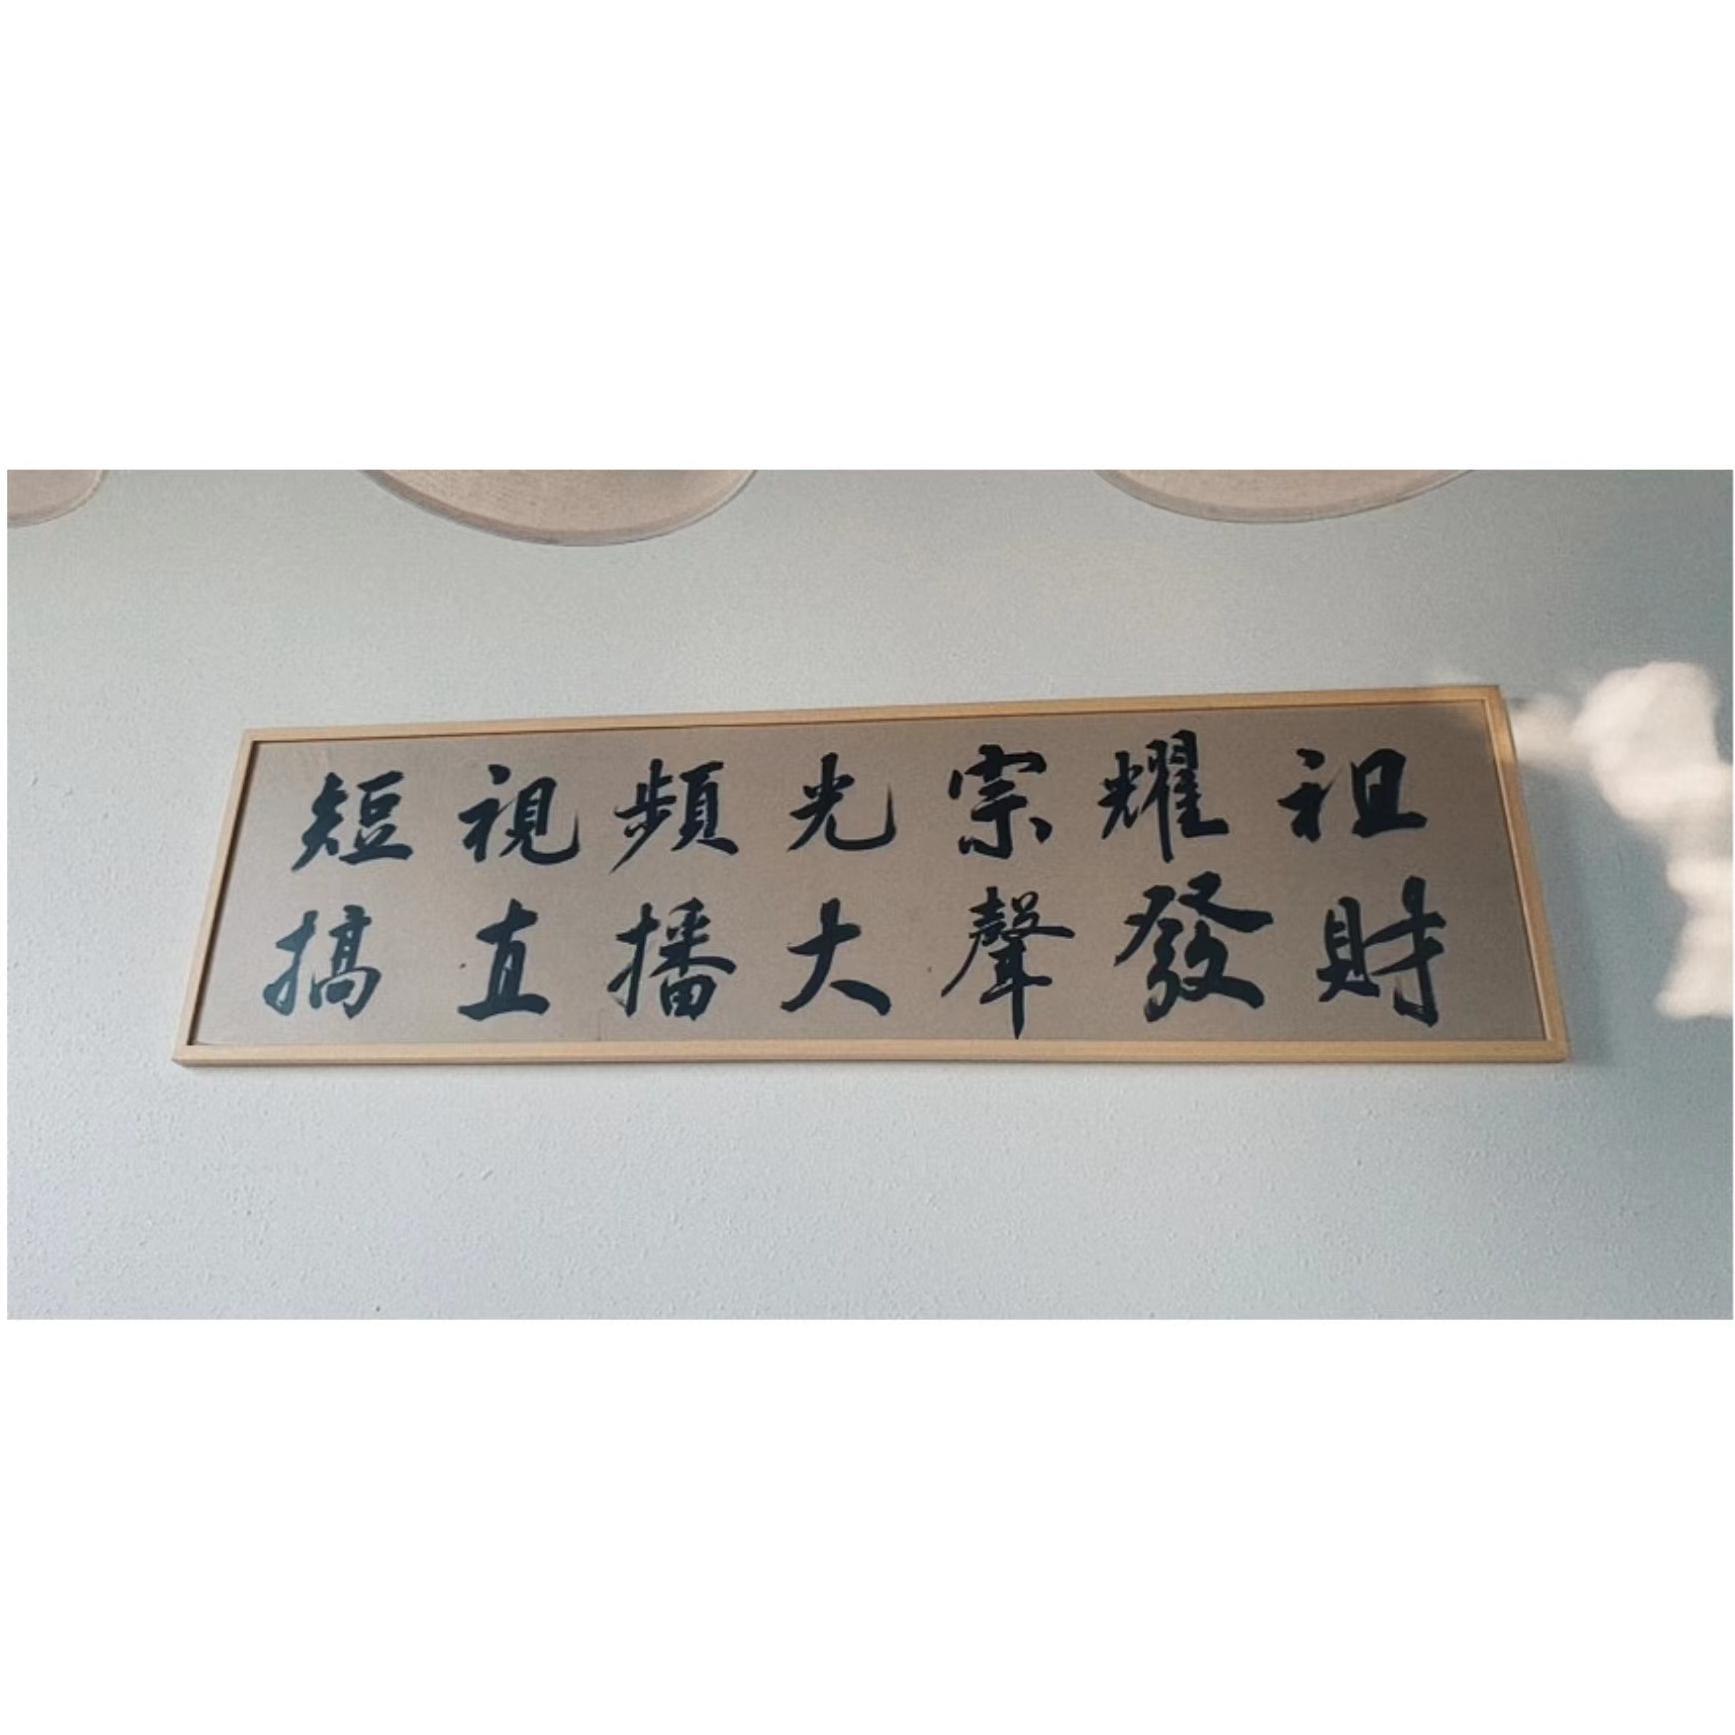 短視頻光宗耀祖
搞直播大聲發財